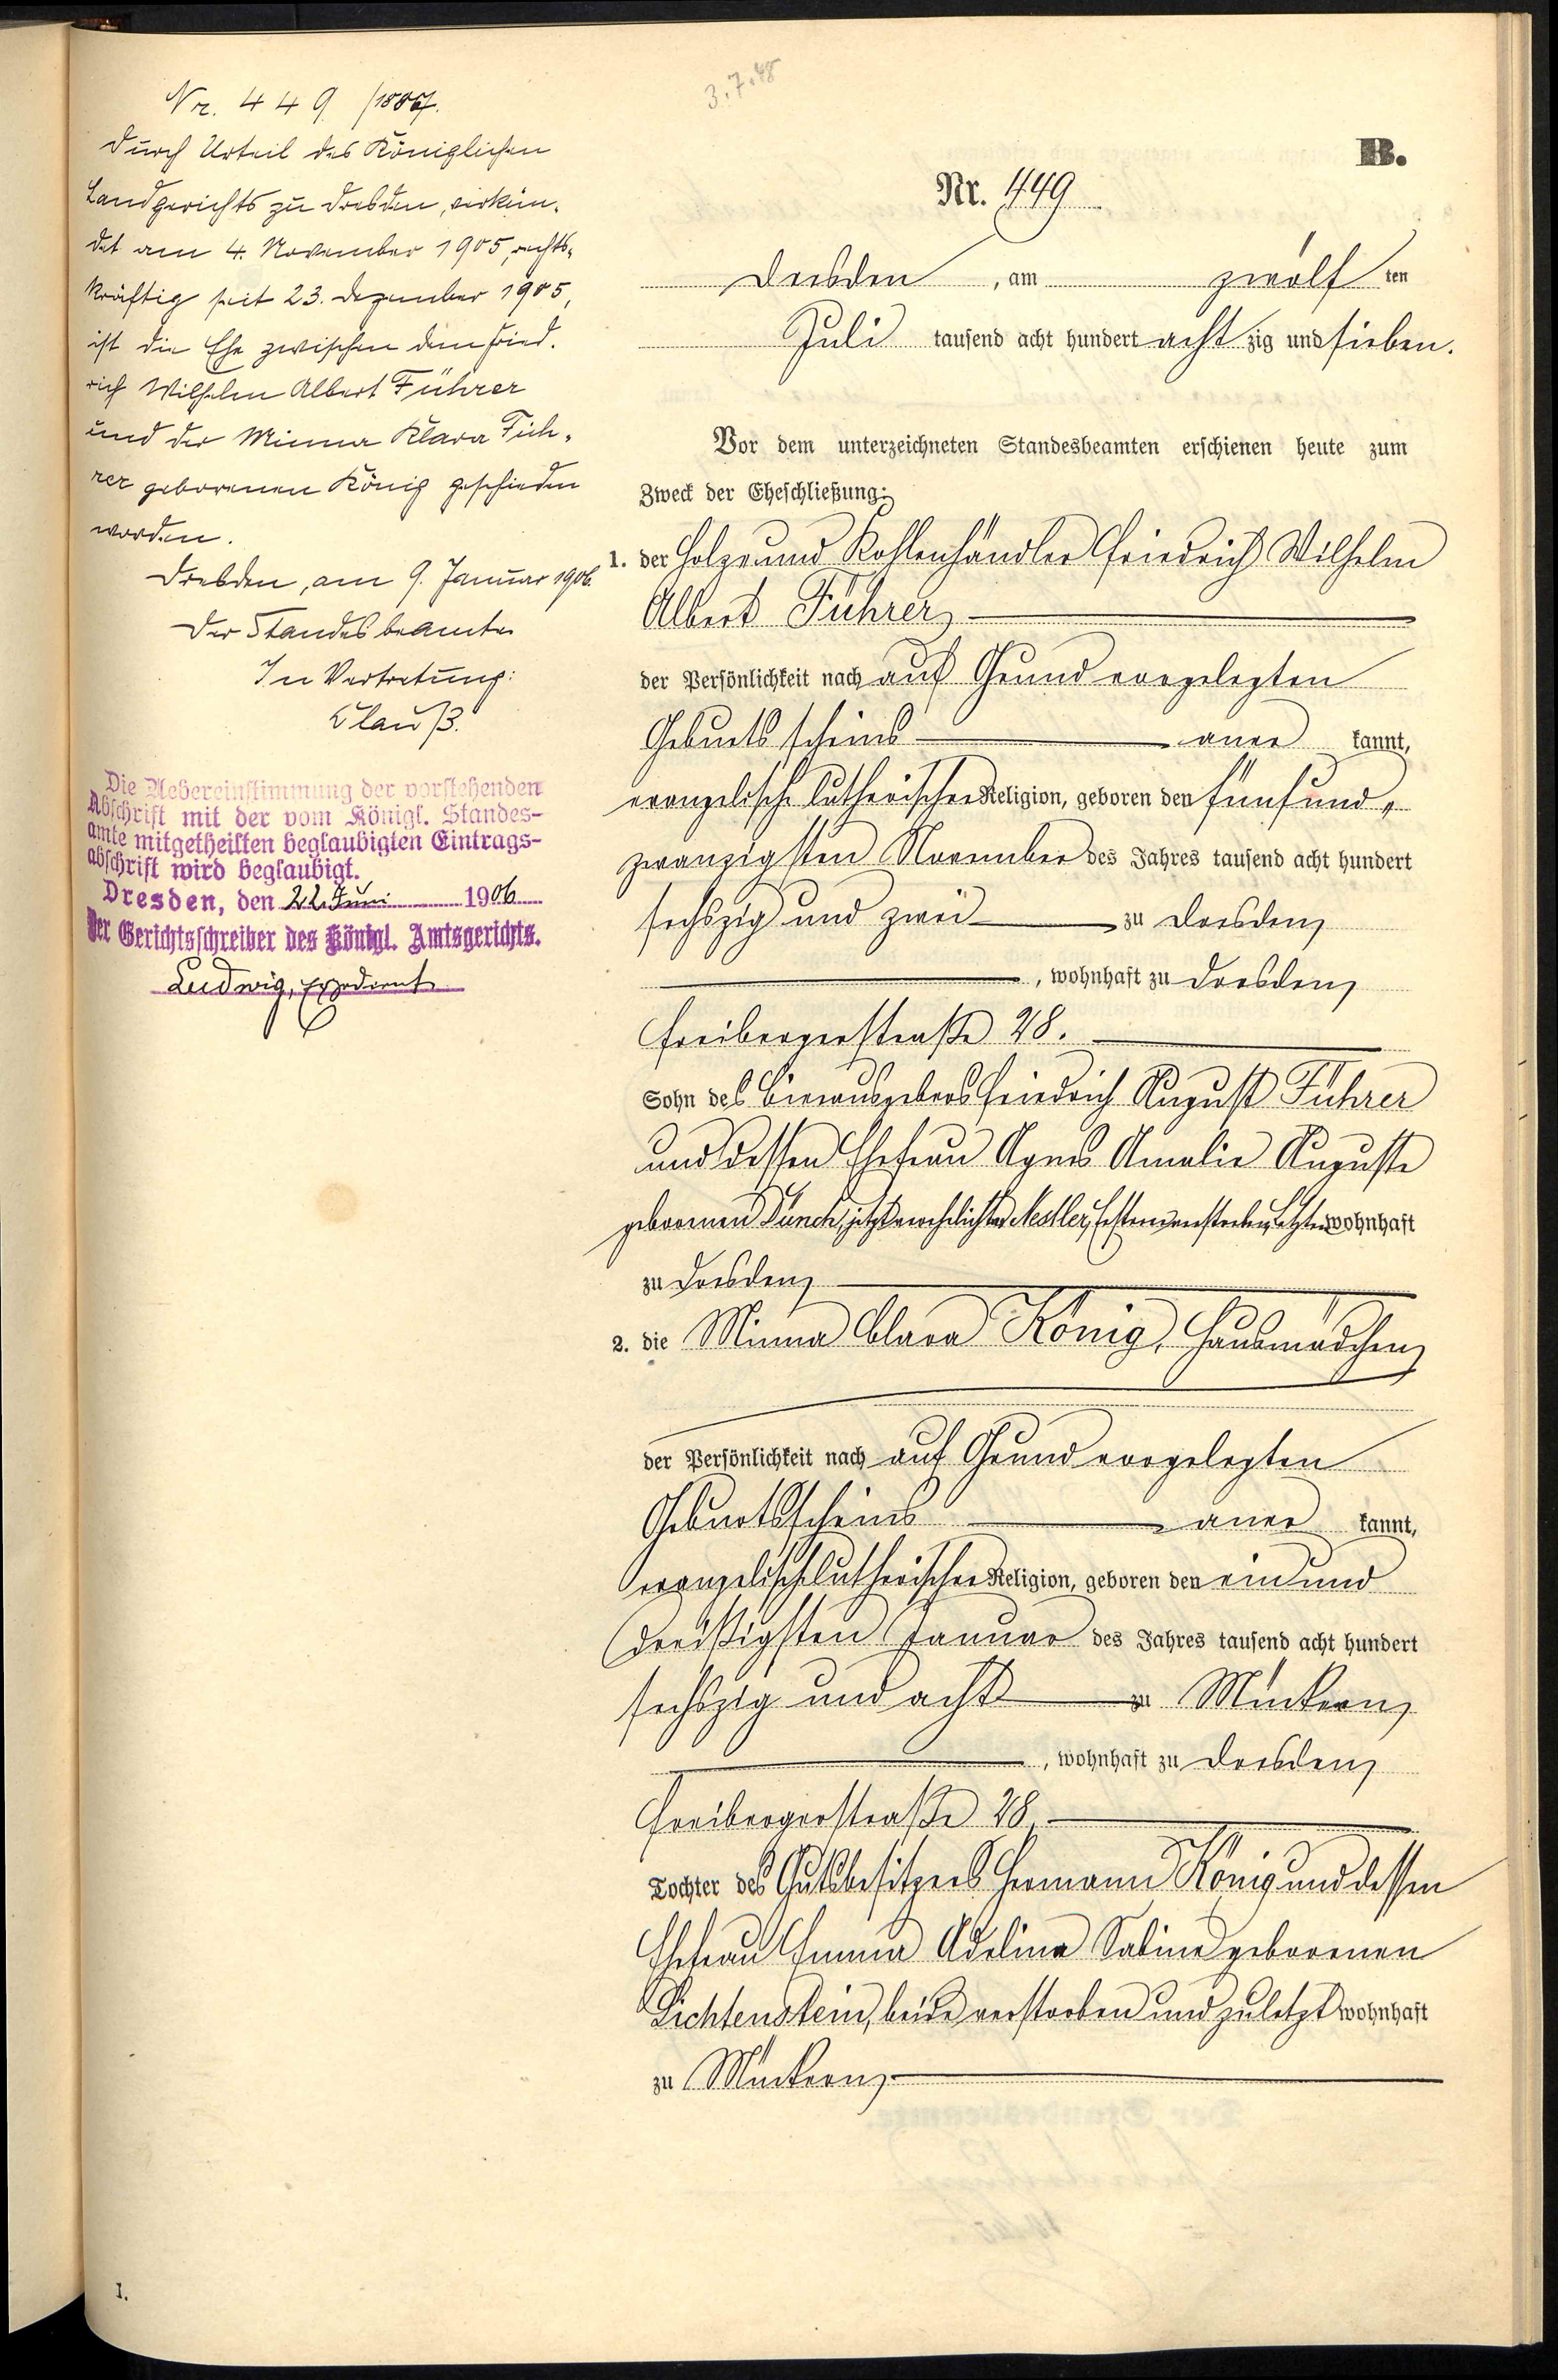 3.7.48
Nr. 449/1887.
Durch Urteil des Königlichen
Landgerichts zu Dresden, verkün-
det am 4. November 1905, rechts-
kräftig seit 23. Dezember 1905,
ist die Ehe zwischen dem Fried-
rich Wilhelm Albert Führer
und der Minna Klara Füh-
rer geborenen König geschieden
worden.
Dresden, am 9. Januar 1906.
Der Standesbeamte
In Vertretung:
Clauß.
Die Uebereinstimmung der vorstehenden
Abschrift mit der vom Königl. Standes-
amte mitgetheilten beglaubigten Eintrags-
abschrift wird beglaubigt.
Dresden, den 22. Juni 1906
Der Gerichtsschreiber des Königl. Amtsgerichts.
Ludwig, Expedient
B.
Nr. 449
Dresden, am zwölf ten
Juli tausend acht hundert acht zig und sieben.
Vor dem unterzeichneten Standesbeamten erschienen heute zum
Zweck der Eheschließung:
1. der Holz- und Kohlenhändler Friedrich Wilhelm
Albert Führer
der Persönlichkeit nach auf Grund vorgelegten
Geburtsscheins aner kannt,
evangelisch-lutherischer Religion, geboren den fünfund-
zwanzigsten November des Jahres tausend acht hundert
sechszig und zwei zu Dresden,
, wohnhaft zu Dresden,
Freibergerstraße 28.
Sohn des Bierausgebers Friedrich August Führer
und dessen Ehefrau Agnes Amalie Auguste
geborenen Dünch, jetzt verehelichten Nestler, Ersterer verstorben, Letztere wohnhaft
zu Dresden,
2. die Minna Clara König, Hausmädchen,
der Persönlichkeit nach auf Grund vorgelegten
Geburtsscheins aner kannt,
evangelisch-lutherischer Religion, geboren den einund
dreißigsten Januar des Jahres tausend acht hundert
sechszig und acht zu Mückern,
, wohnhaft zu Dresden,
Freibergerstraße 28,
Tochter des Gutsbesitzers Hermann König und dessen
Ehefrau Emma Adeline Sabine geborenen
Lichtenstein, beide verstorben und zuletzt wohnhaft
zu Mückern,
I.